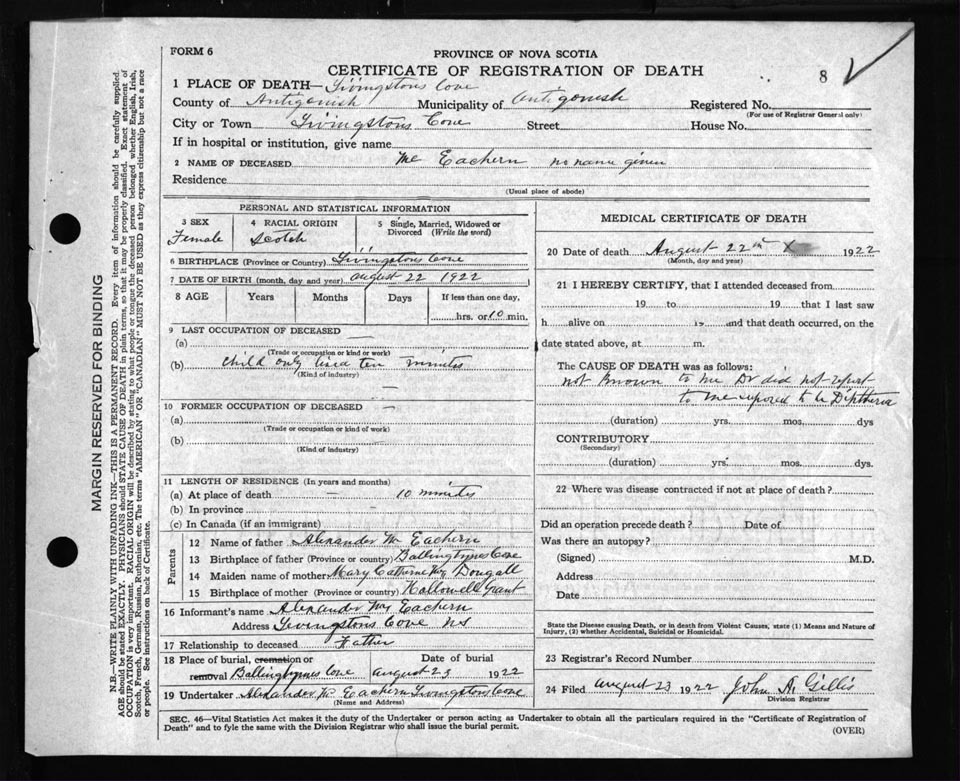 FORM 6
PROVINCE OF NOVA SCOTIA
CERTIFICATE OF REGISTRATION OF DEATH
8
1 PLACE OF DEATH—Livingstons Cove
County of Antigonish Municipality of Antigonish Registered No.
(For use of Registrar General only)
City or Town Livingstons Cove Street House No.
If in hospital or institution, give name
2 NAME OF DECEASED Mc Eachern no name given
Residence
(Usual place of abode)
PERSONAL AND STATISTICAL INFORMATION
3 SEX 4 RACIAL ORIGIN 5 Single, Married, Widowed or Divorced (Write the word)
Female Scotch
6 BIRTHPLACE (Province or Country) Livingstons Cove
7 DATE OF BIRTH (month, day and year) August 22 1922
8 AGE Years Months Days If less than one day,
hrs. or 10 min.
9 LAST OCCUPATION OF DECEASED
(a) —
(Trade or occupation or kind or work)
(b) child only lived ten minutes
(Kind of industry)
—
10 FORMER OCCUPATION OF DECEASED —
(a)
(Trade or occupation or kind of work)
(b)
(Kind of industry)
11 LENGTH OF RESIDENCE (In years and months)
(a) At place of death — 10 minutes
(b) In province
(c) In Canada (if an immigrant)
Parents
12 Name of father Alexander Mc Eachern
13 Birthplace of father (Province or country) Cove
14 Maiden name of mother Mary Catherine Mc Dougall
15 Birthplace of mother (Province or country) Hallowell Grant
16 Informant's name Alexander Mc Eachern
Address Livingstons Cove NS
17 Relationship to deceased Father
18 Place of burial, cremation or removal Cove
Date of burial August 23 1922
19 Undertaker Alexander Mc Eachern Livingstons Cove
(Name and Address)
MEDICAL CERTIFICATE OF DEATH
20 Date of death August 22nd 1922
(Month, day and year)
21 I HEREBY CERTIFY, that I attended deceased from
19 to 19 that I last saw
h alive on 19 and that death occurred, on the
date stated above, at m.
The CAUSE OF DEATH was as follows:
not known to me Dr did not report
to me supposed to be Diptheria
(duration) yrs. mos. dys
CONTRIBUTORY
(Secondary)
(duration) yrs. mos. dys.
22 Where was disease contracted if not at place of death?
Did an operation precede death? Date of
Was there an autopsy?
(Signed) M.D.
Address
Date
State the Disease causing Death, or in death from Violent Causes, state (1) Means and Nature of
Injury, (2) whether Accidental, Suicidal or Homicidal.
23 Registrar's Record Number
24 Filed August 23 1922 John A. Gillis
Division Registrar
SEC. 46—Vital Statistics Act makes it the duty of the Undertaker or person acting as Undertaker to obtain all the particulars required in the "Certificate of Registration of
Death" and to fyle the same with the Division Registrar who shall issue the burial permit.
(OVER)
MARGIN RESERVED FOR BINDING
N.B.—WRITE PLAINLY WITH UNFADING INK—THIS IS A PERMANENT RECORD. Every item of information should be carefully supplied.
AGE should be stated EXACTLY. PHYSICIANS should STATE CAUSE OF DEATH in plain terms, so that it may be properly classified. Exact statement of
OCCUPATION is very important. RACIAL ORIGIN will be described by stating to what people or tongue the deceased person belonged whether English, Irish,
Scotch, French, German, Russian, Ruthenian, etc. The terms "AMERICAN" OR "CANADIAN" MUST NOT BE USED as they express citizenship but not a race
or people. See instructions on back of Certificate.